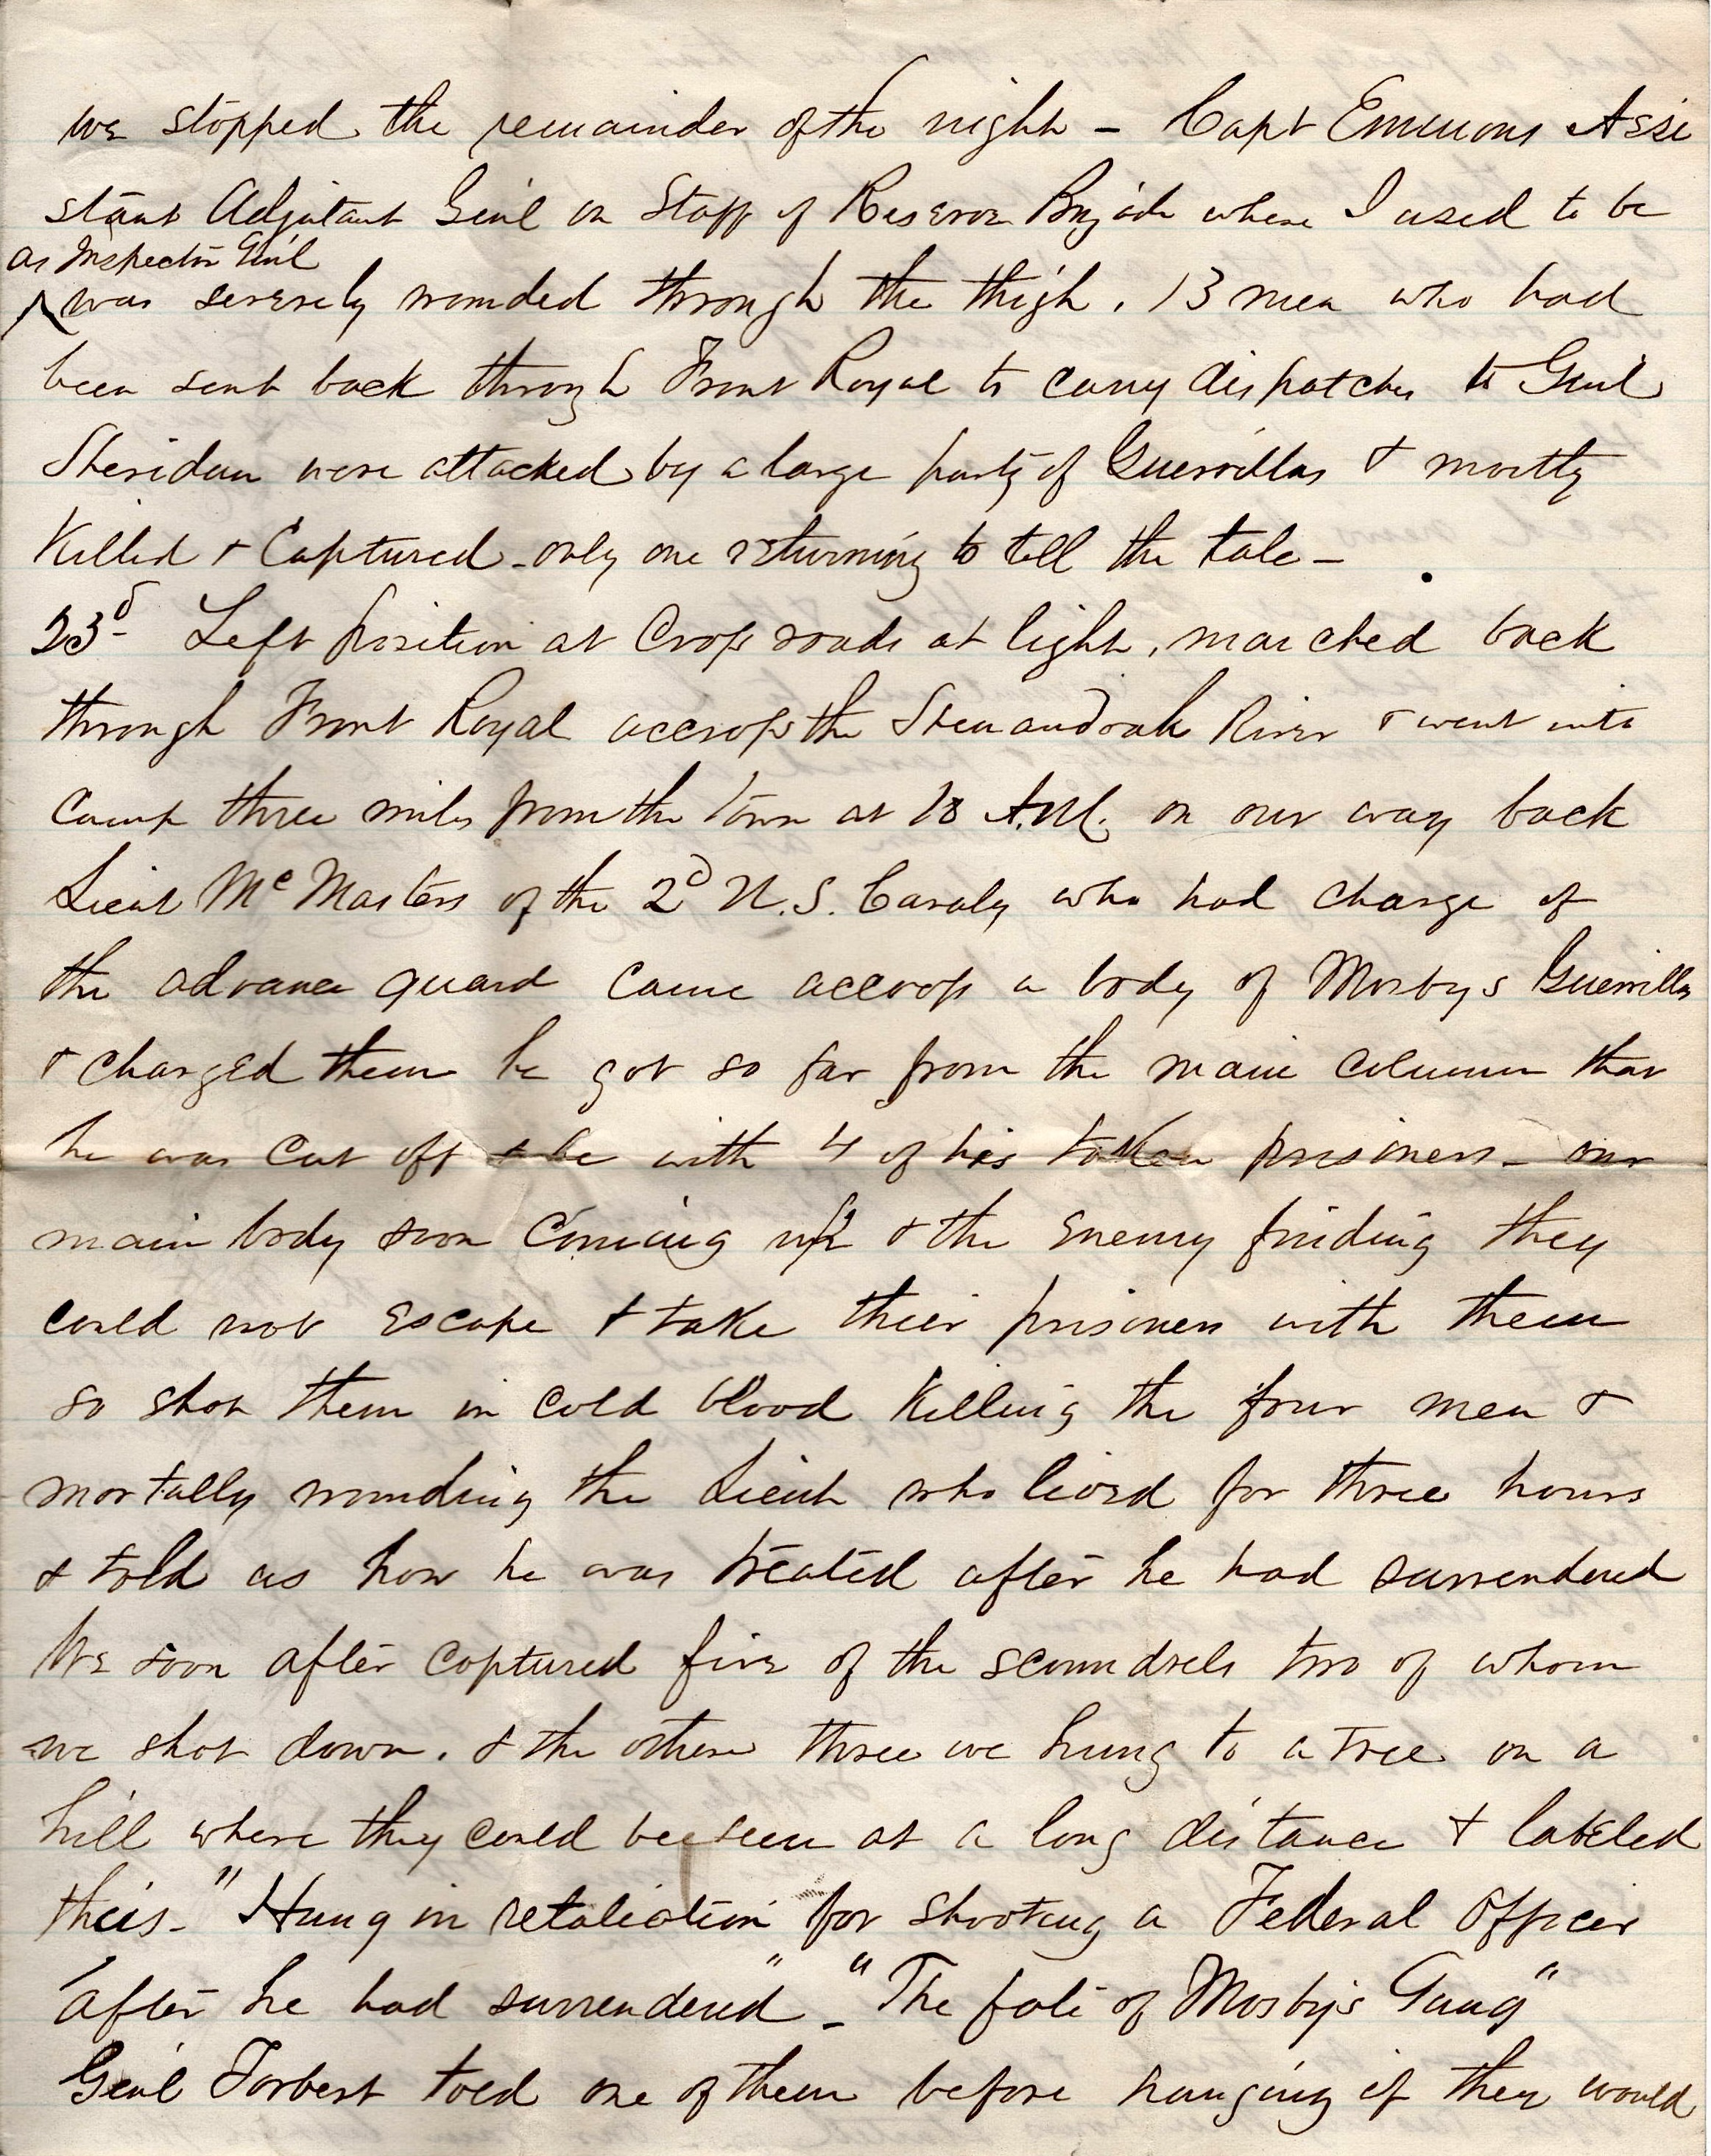 we stopped the remainder of the night - Capt Emmons Assi
stant Adjutant Genl on Staff of Reserve Brigade where I used to be
as Inspector Genl
was severely wounded through the thigh. 13 men who had
been sent back through Front Royal to carry dispatches to Genl
Sheridan were attacked by a large party of Guerrillas & mostly
Killed & Captured - only one returning to tell the tale -
23d Left position at Cross roads at light, marched back
through Front Royal accross the Shenandoah River & went into
Camp three miles from the Town at 10 A.M. on our way back
Lieut McMasters of the 2d U.S. Cavaly who had charge of
the advance guard came accross a body of Mosbys Guerrillas
& charged them he got so far from the main column that
he was cut off & he with 4 of his taken prisoners - our
main body soon coming up & the enemy finding they
could not escape & take their prisoners with them
so shot them in cold blood Killing the four men &
mortally wounding the Lieut who lived for three hours
& told us how he was treated after he had surrendered
We soon after captured five of the scoundrels two of whom
we shot down. & the others three we hung to a tree on a
hill where they could bee seen at a long distance & labeled
thus - "Hung in retaliation for shooting a Federal Officer
after he had surrendered" - "The fate of Mosby's Gang"
Genl Torbert told one of them before hanging if they would